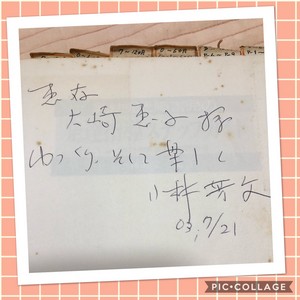 恵存
大崎恵子様
ゆっくり、そして華しく
小林芳文
03, 7/21
PIC•COLLAGE